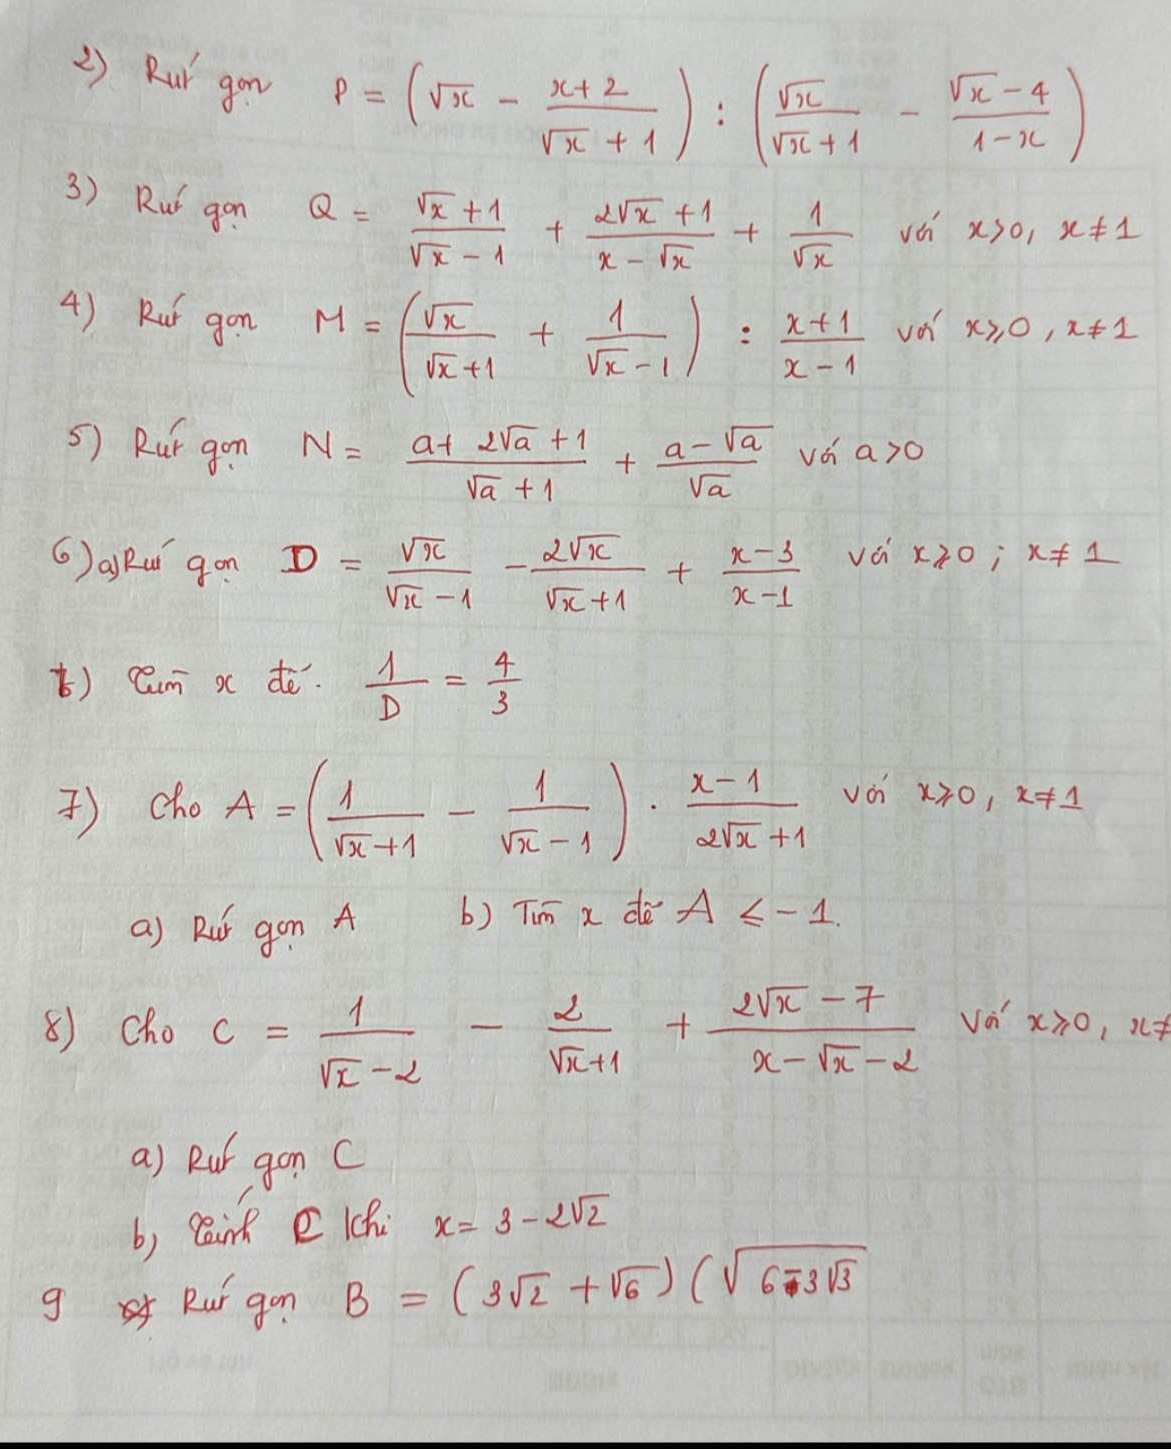 2) Rút gọn P = (√x - (x+2)/(√x + 1)) : (√x/(√x+1) - (√x - 4)/(1-x))
3) Rút gọn Q = (√x + 1)/(√x - 1) + (2√x + 1)/(x - √x) + 1/√x với x>0, x≠1
4) Rút gọn M = (√x/(√x+1) + 1/(√x - 1)) : (x+1)/(x-1) với x⩾0, x≠1
5) Rút gọn N = (a+ 2√a + 1)/(√a + 1) + (a-√a)/√a với a>0
6) a) Rút gọn D = √x/(√x - 1) - 2√x/(√x+1) + (x-3)/(x-1) với x⩾0 ; x≠1
b) Tìm x để. 1/D = 4/3
7) Cho A = (1/(√x+1) - 1/(√x - 1)) · (x-1)/(2√x +1) với x⩾0, x≠1
a) Rút gọn A b) Tìm x để A ⩽ -1.
8) Cho C = 1/(√x - 2) - 2/(√x+1) + (2√x - 7)/(x-√x-2) với x⩾0, x≠
a) Rút gọn C
b) Tính C khi x= 3-2√2
9 Rút gọn B = (3√2 + √6)(√(6-3√3)